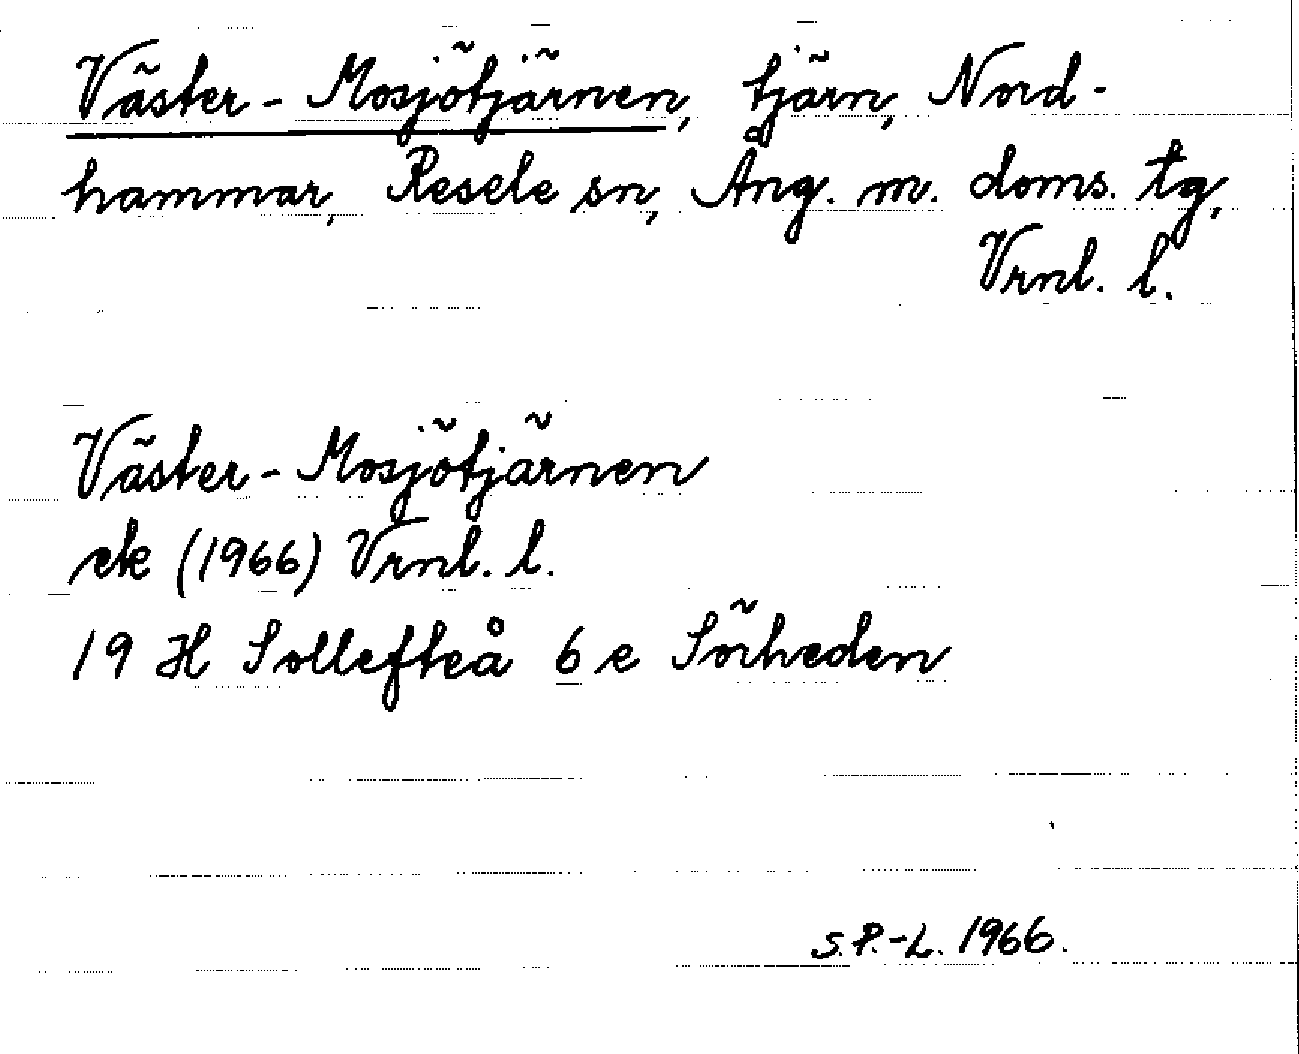 Väster-Mosjötjärnen, tjärn, Nord-
hammar, Resele sn, Ång. m. doms. tg,
Vrnl. l.
Väster-Mosjötjärnen
ek (1966) Vrnl. l.
19 H Sollefteå 6 e Sörheden
S.P.-L. 1966.